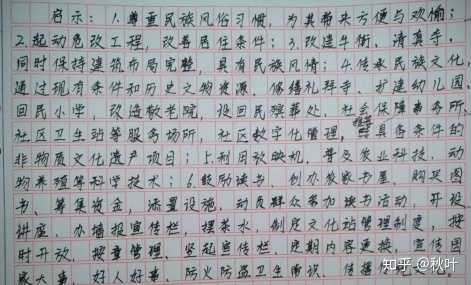 启示：1.尊重民族风俗习惯，为其带来方便与欢愉；
2.起动危改工程，改善居住条件；3.改造牛街、清真寺，
同时保持建筑布局完整，具有民族风情；4.传承民族文化，
通过现有条件和历史文物资源，修缮礼拜寺、扩建幼儿园、
回民小学，改造敬老院，设回民殡葬处、社会保障事务所、
社区卫生站等服务场所，社区数字化管理，推荐具备条件的
非物质文化遗产项目；5.利用放映机，普及农业科技、动
物养殖等科学技术；6.鼓励读书、创办农家书屋，购买图
书、筹集资金，添置设施，动员群众参加读书活动，开设
讲座、办墙报宣传栏，摆茶水，制定文化站管理制度，按
时开放、按章管理、竖起宣传栏，定期内容更换，宣传国
家大事、好人好事、防火防盗卫生常识、传播
知乎 @秋叶